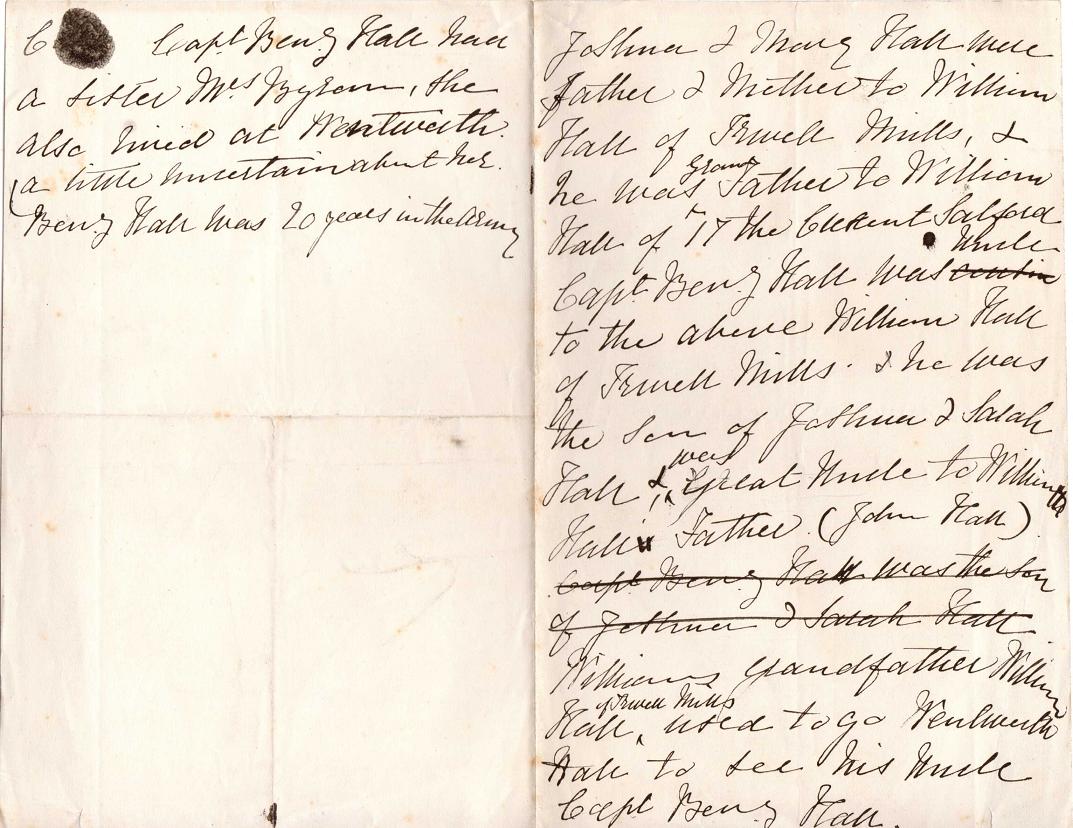 C Capt Benj Hall had
a sister Mrs Byrom, she
also lived at Wentworth.
(a little uncertain about her.
Benj Hall was 20 years in the Army
Joshua & Mary Hall were
father & Mother to William
Hall of Irwell Mills, &
he was Grand Father to William
Hall of 77 The Cresent Salford
Capt Benj Hall was cousin Uncle
to the above William Hall
of Irwell Mills. & he was
the Son of Joshua & Sarah
Hall, & was Great Uncle to William
Hall's Father (John Hall)
Capt Benj Hall was the Son
of Joshua & Sarah Hall
Williams grandfather William
Hall, of Irwell Mills used to go Wentworth
Hall to see his Uncle
Capt Benj Hall.